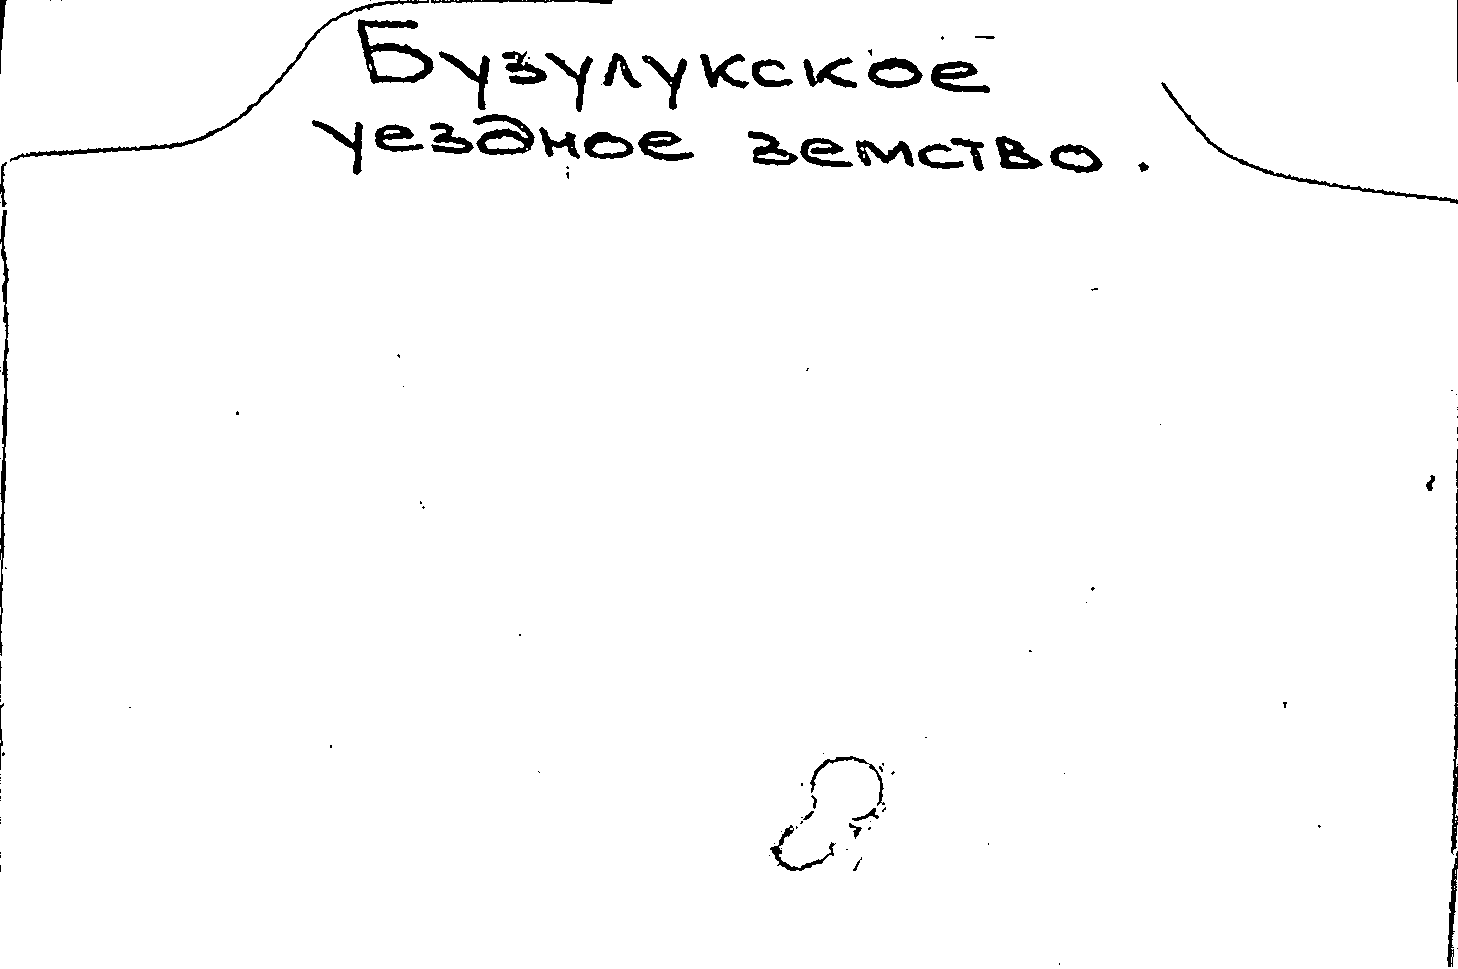 Бузулукское
уездное земство.